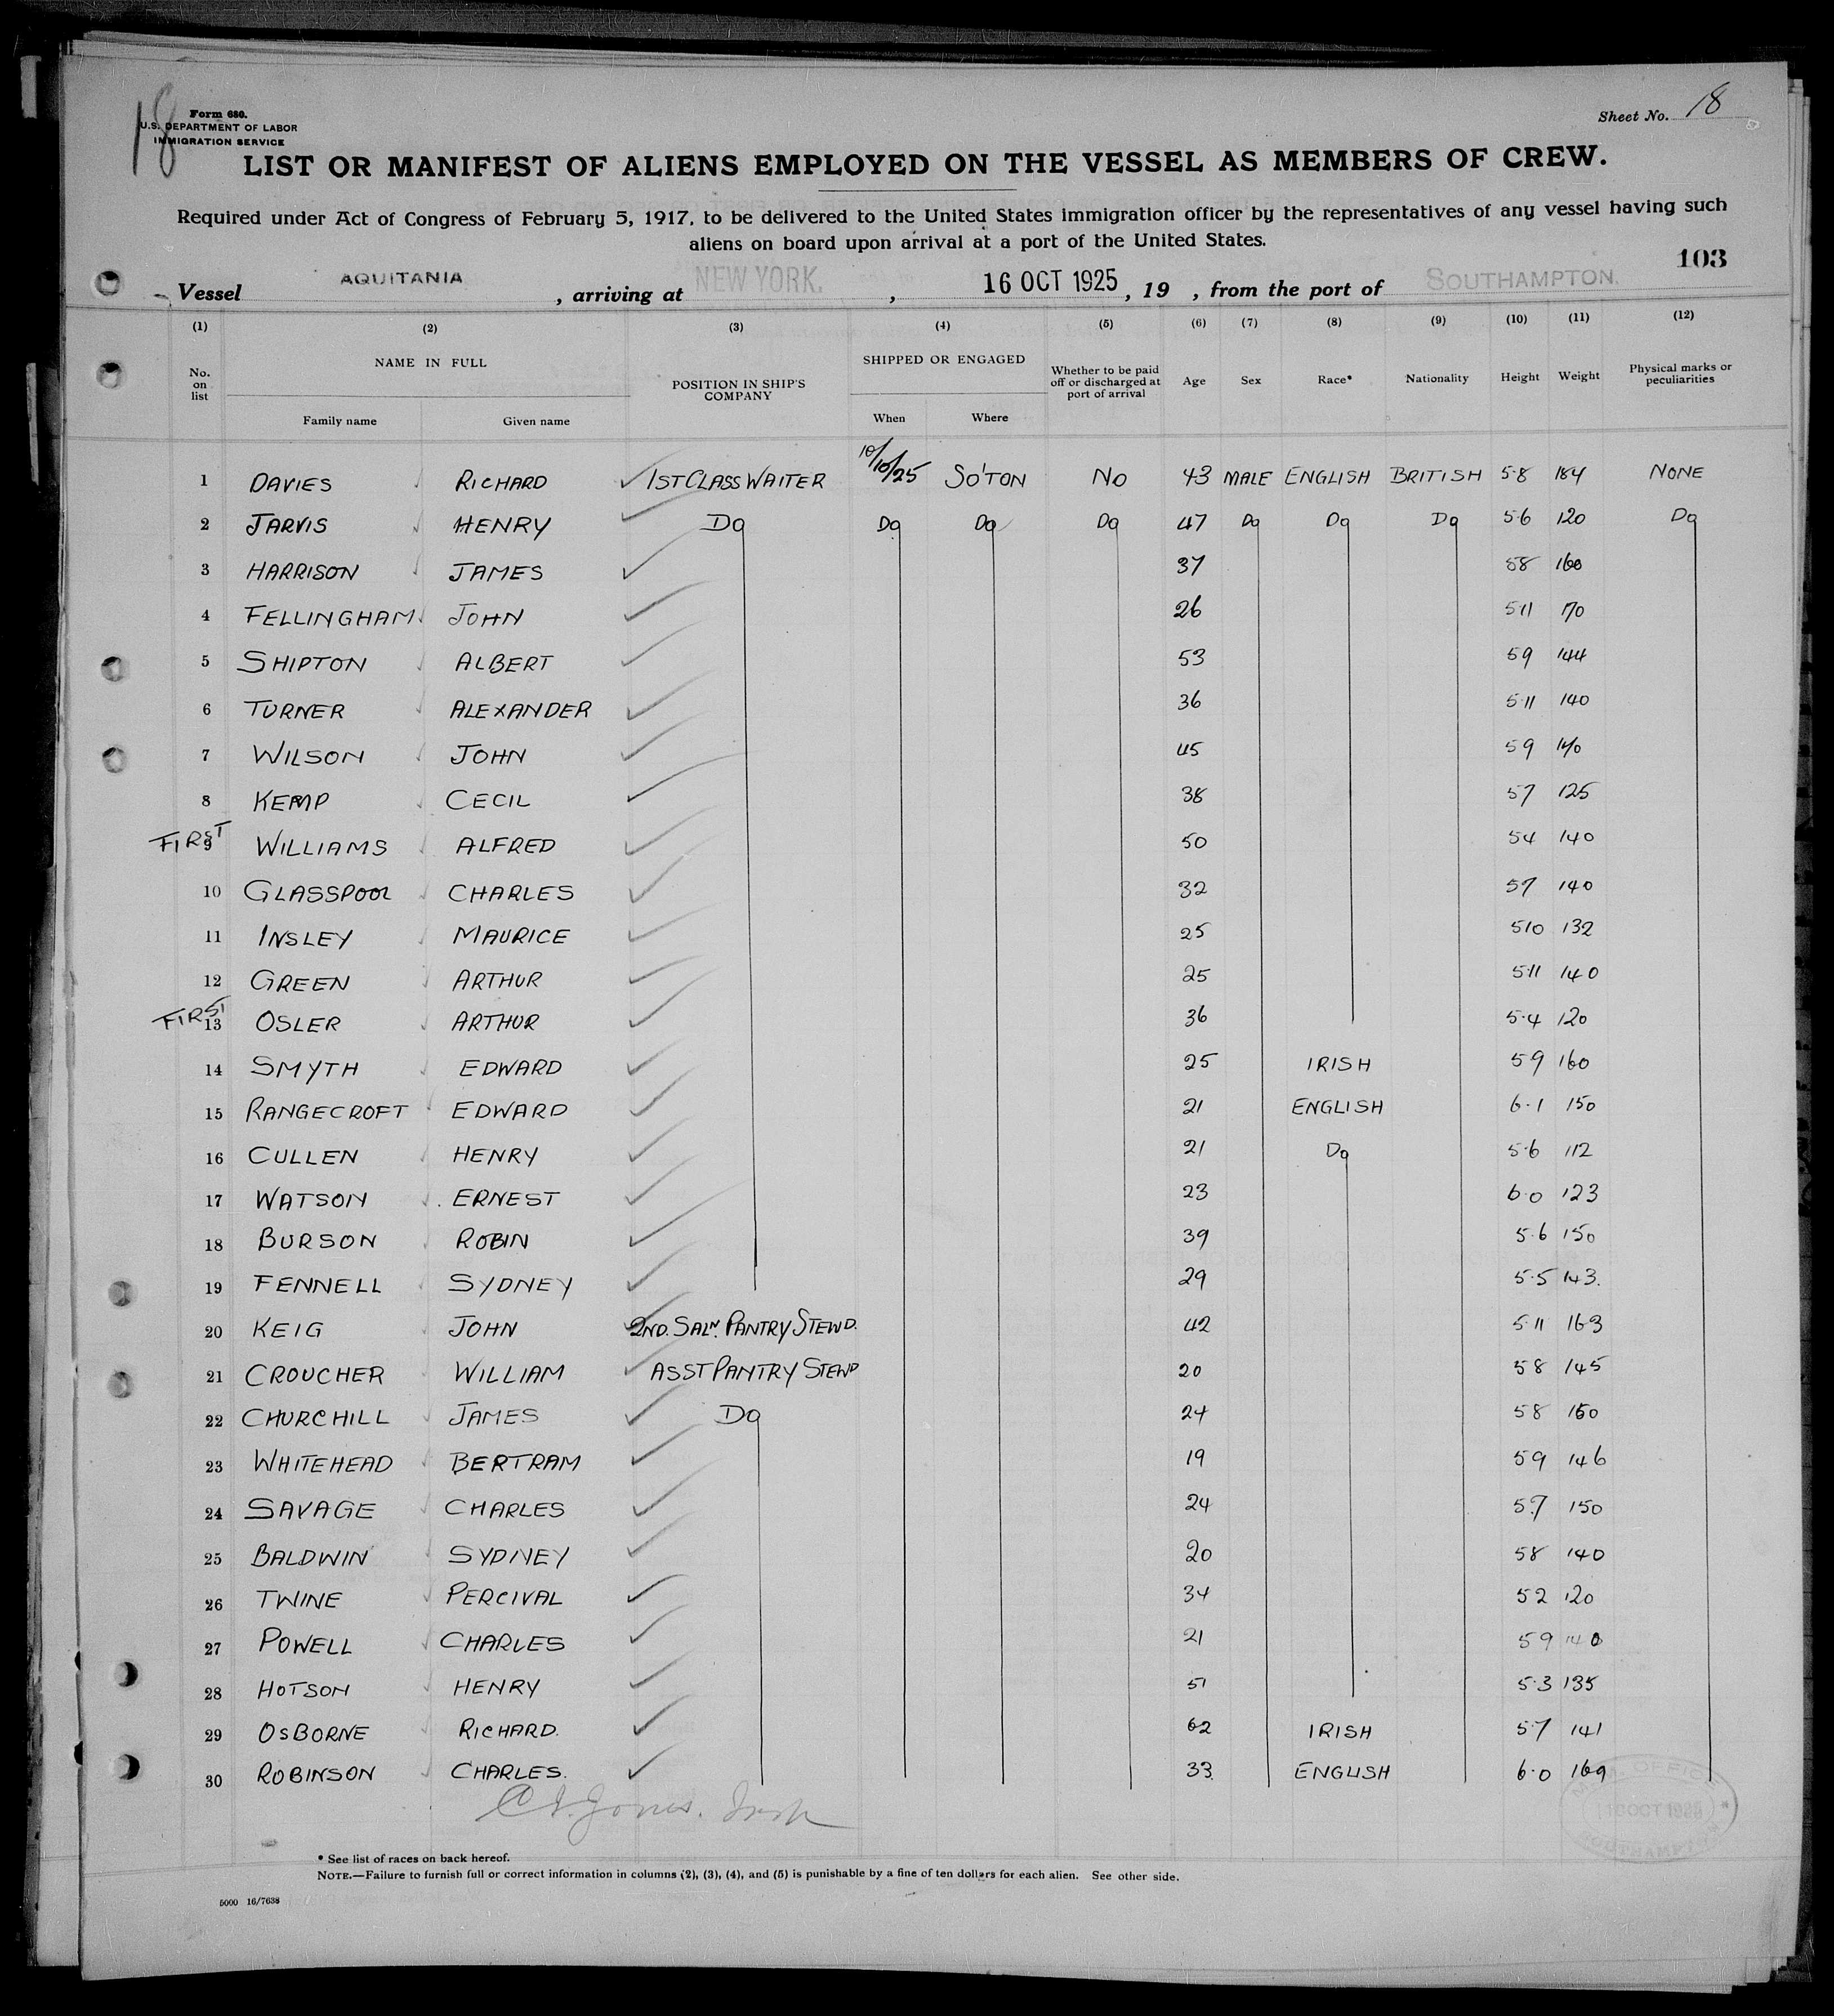 18
Form 680.
U.S. DEPARTMENT OF LABOR
IMMIGRATION SERVICE
Sheet No. 18
LIST OR MANIFEST OF ALIENS EMPLOYED ON THE VESSEL AS MEMBERS OF CREW.
Required under Act of Congress of February 5, 1917, to be delivered to the United States immigration officer by the representatives of any vessel having such
aliens on board upon arrival at a port of the United States.
103
Vessel AQUITANIA, arriving at NEW YORK., 16 OCT 1925, 19 , from the port of SOUTHAMPTON.
(1) (2) (3) (4) (5) (6) (7) (8) (9) (10) (11) (12)
No. on list NAME IN FULL Family name Given name POSITION IN SHIP'S COMPANY SHIPPED OR ENGAGED When Where Whether to be paid off or discharged at port of arrival Age Sex Race* Nationality Height Weight Physical marks or peculiarities
1 DAVIES RICHARD 1ST CLASS WAITER 10/10/25 SO'TON NO 43 MALE ENGLISH BRITISH 5·8 184 NONE
2 JARVIS HENRY Do Do Do Do 47 Do Do Do 5·6 120 Do
3 HARRISON JAMES 37 58 160
4 FELLINGHAM JOHN 26 5·11 170
5 SHIPTON ALBERT 53 59 144
6 TURNER ALEXANDER 36 5·11 140
7 WILSON JOHN 45 59 140
8 KEMP CECIL 38 57 125
FIRST 9 WILLIAMS ALFRED 50 54 140
10 GLASSPOOL CHARLES 32 57 140
11 INSLEY MAURICE 25 510 132
12 GREEN ARTHUR 25 5·11 140
FIRST 13 OSLER ARTHUR 36 5·4 120
14 SMYTH EDWARD 25 IRISH 59 160
15 RANGECROFT EDWARD 21 ENGLISH 6·1 150
16 CULLEN HENRY 21 Do 5·6 112
17 WATSON ERNEST 23 6·0 123
18 BURSON ROBIN 39 5·6 150
19 FENNELL SYDNEY 29 5·5 143.
20 KEIG JOHN 2ND. SALN. PANTRY STEWD. 42 5·11 163
21 CROUCHER WILLIAM ASST PANTRY STEWD 20 58 145
22 CHURCHILL JAMES Do 24 58 150
23 WHITEHEAD BERTRAM 19 59 146
24 SAVAGE CHARLES 24 5.7 150
25 BALDWIN SYDNEY 20 58 140
26 TWINE PERCIVAL 34 52 120
27 POWELL CHARLES 21 59 140
28 HOTSON HENRY 51 5·3 135
29 OSBORNE RICHARD. 62 IRISH 5·7 141
30 ROBINSON CHARLES. 33. ENGLISH 6·0 169
Jones.
OFFICE
OCT 1925
SOUTHAMPTON
* See list of races on back hereof.
NOTE.—Failure to furnish full or correct information in columns (2), (3), (4), and (5) is punishable by a fine of ten dollars for each alien. See other side.
5000 16/7638